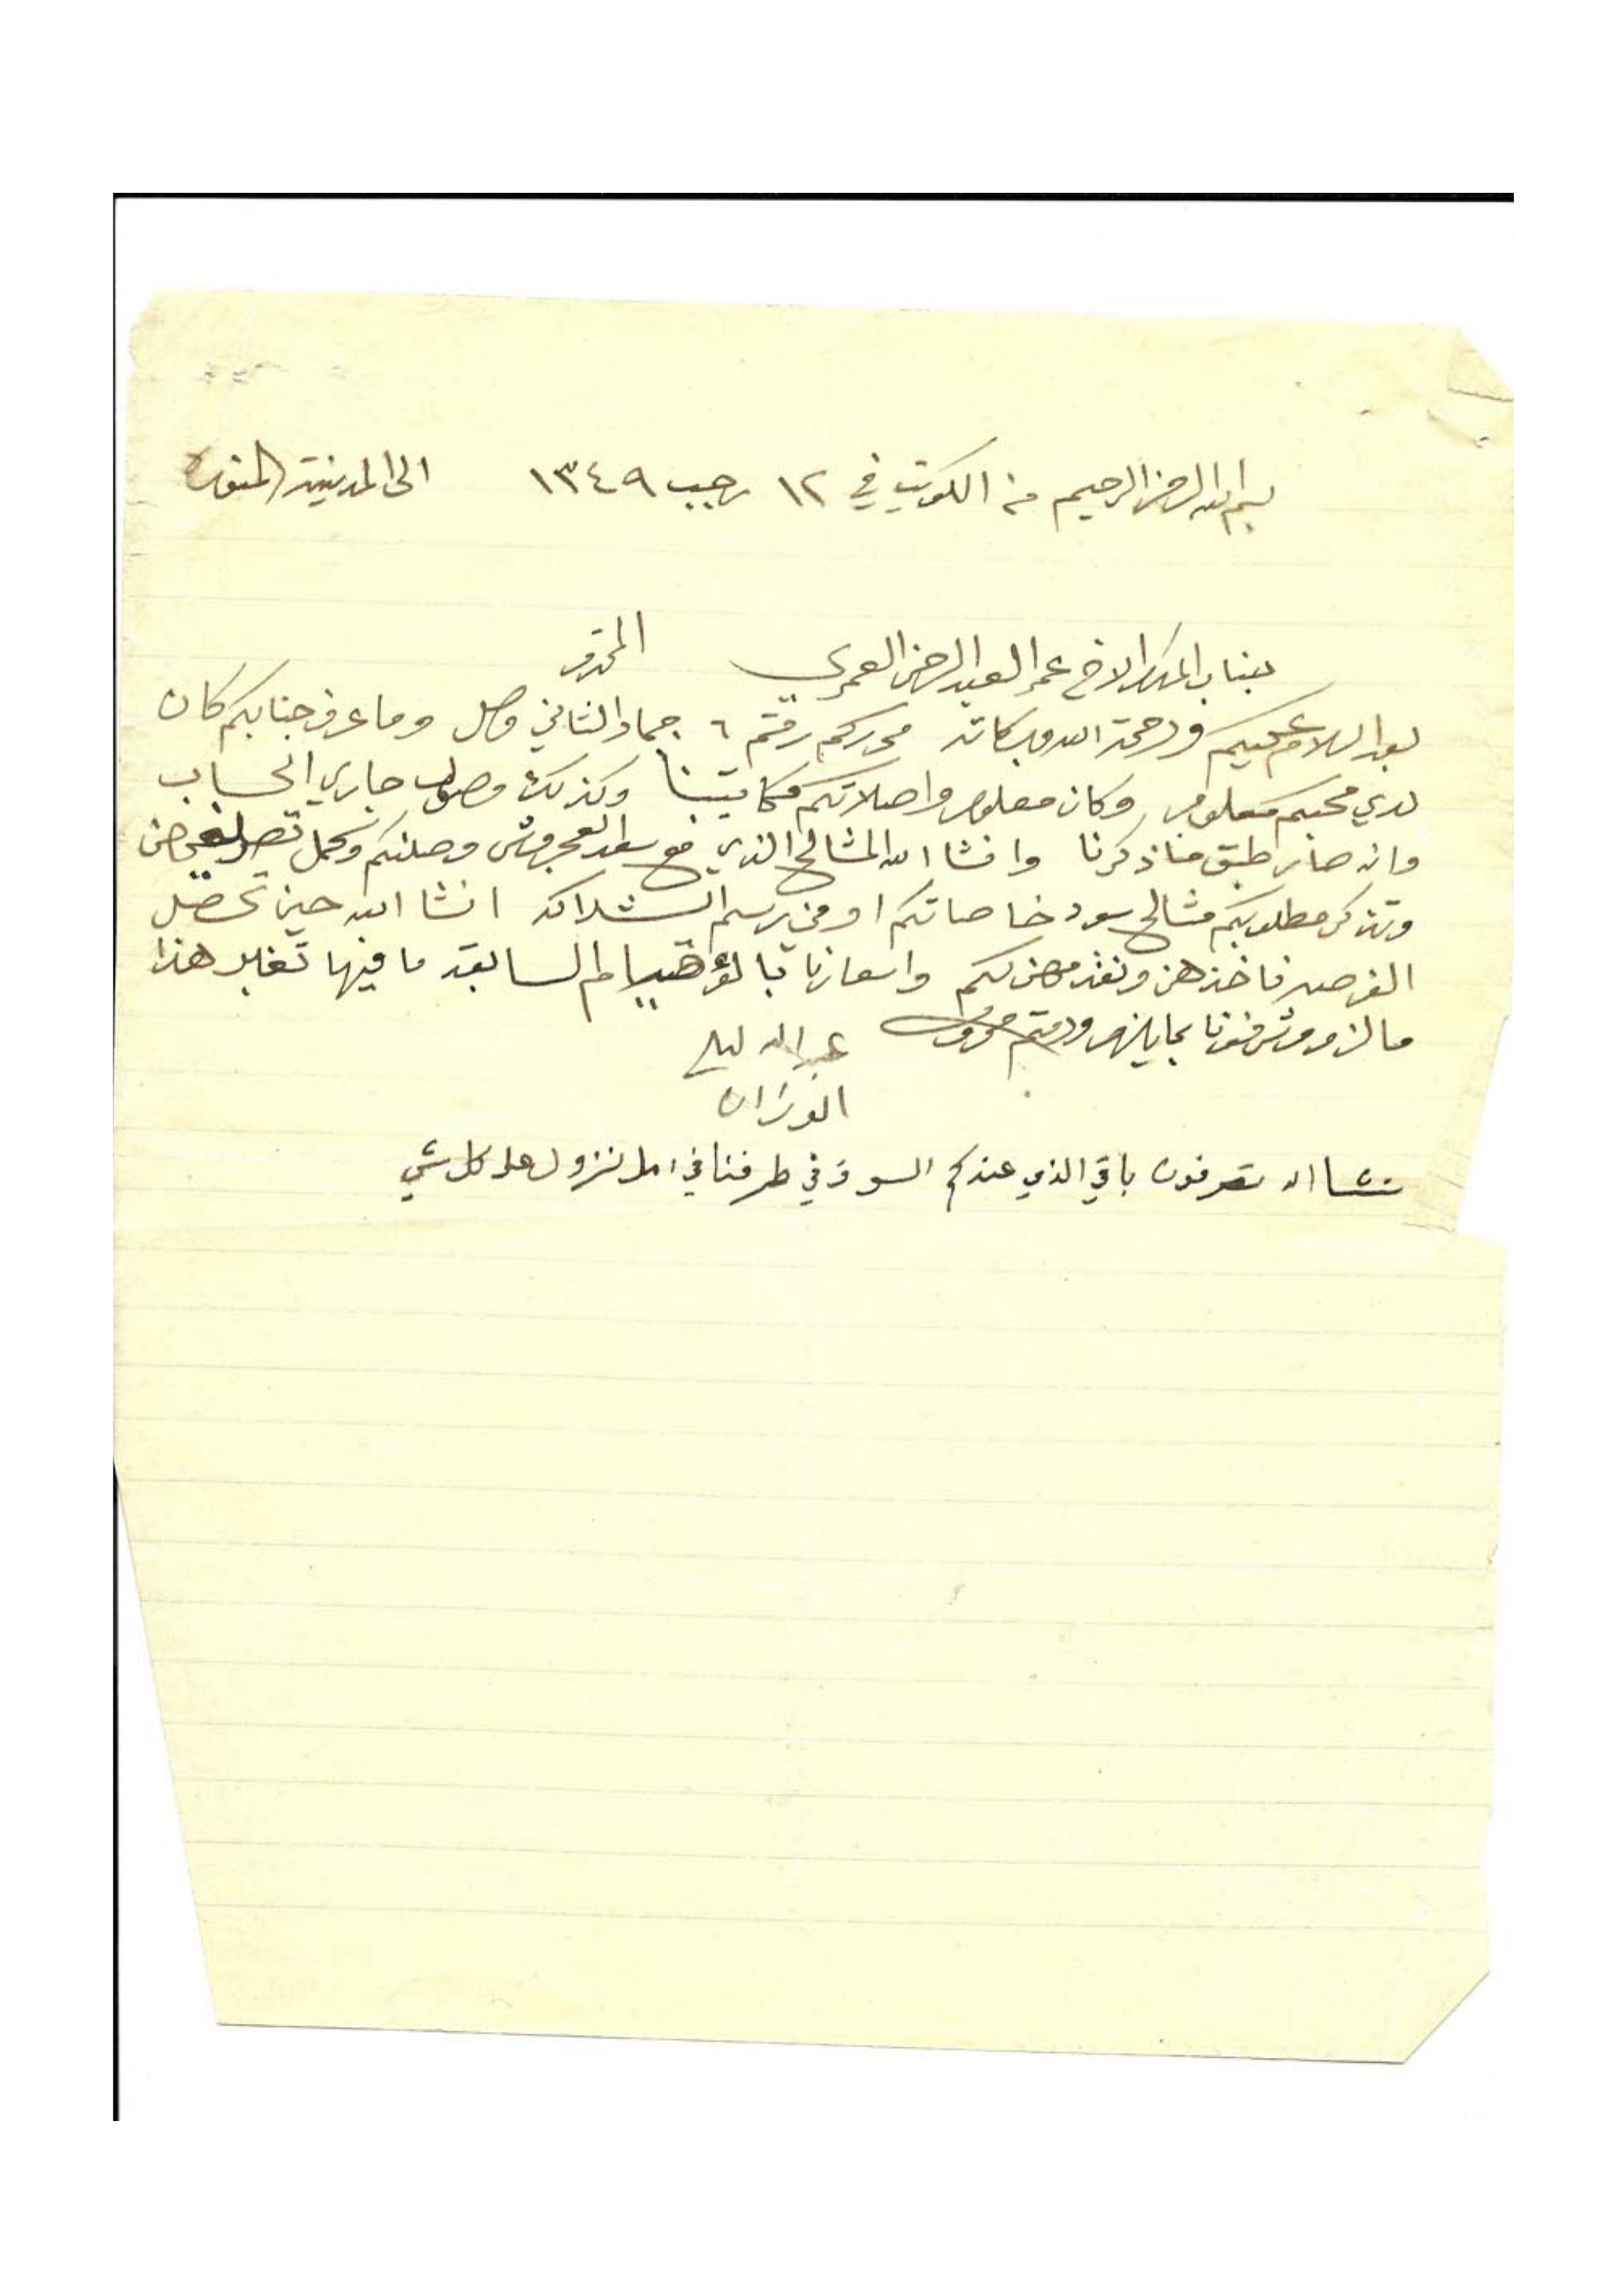 بسم الله الرحمن الرحيم من الكويت في ١٢ رجب ١٣٤٩ الى المدينة المنوره
جناب المكرم الاخ عمر العبد الرحمن العمري المحترم
بعد السلام عليكم ورحمة الله وبركاته محرركم رقم ٦ جماد الثاني وصل وما عرف جنابكم كان
لدي محبكم معلوم وكان معلوم واصلاتكم مكاتيبنا وكذلك وصول جاري الحساب
وانه صار طبق ما ذكرنا وانشا الله المشالح الذي مع سعد وصلتكم وكمل تصريفهن
وتذكر مطلوبكم مشالح سود خاصاتكم او من رسم انشا الله حين تحصل
الفرصه ناخذهن ونقدمهن لكم واسعارنا السابقة ما فيها تغاير هذا
ما لزم وشرفونا بما يلزم ودمتم
عبد الله
الوزان
نشا الله تصرفون باقي الذي عندكم السوق في طرفنا في نزول على كل شي